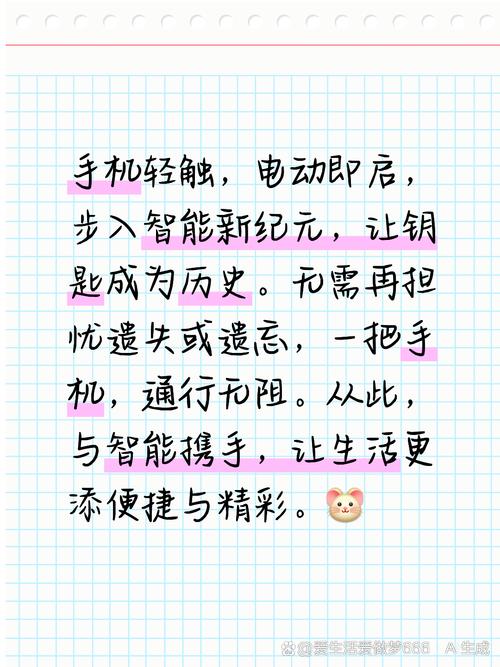 手机轻触，电动即启，
步入智能新纪元，让钥
匙成为历史。无需再担
忧遗失或遗忘，一把手
机，通行无阻。从此，
与智能携手，让生活更
添便捷与精彩。🐭
@爱生活爱做梦666 A生成